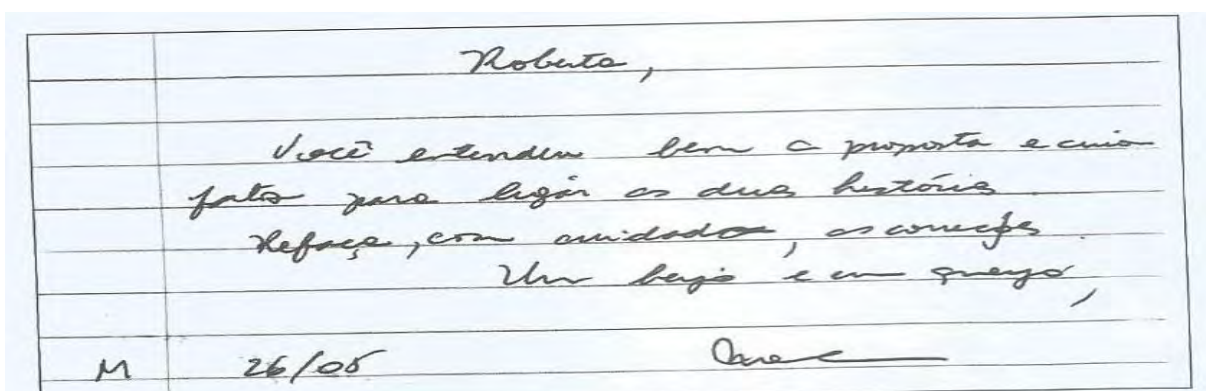 Roberta,
Você entendeu bem a proposta e criou
fatos para ligar as duas histórias.
Refaça, com cuidado, as correções.
Um beijo e um queijo,
M 26/05